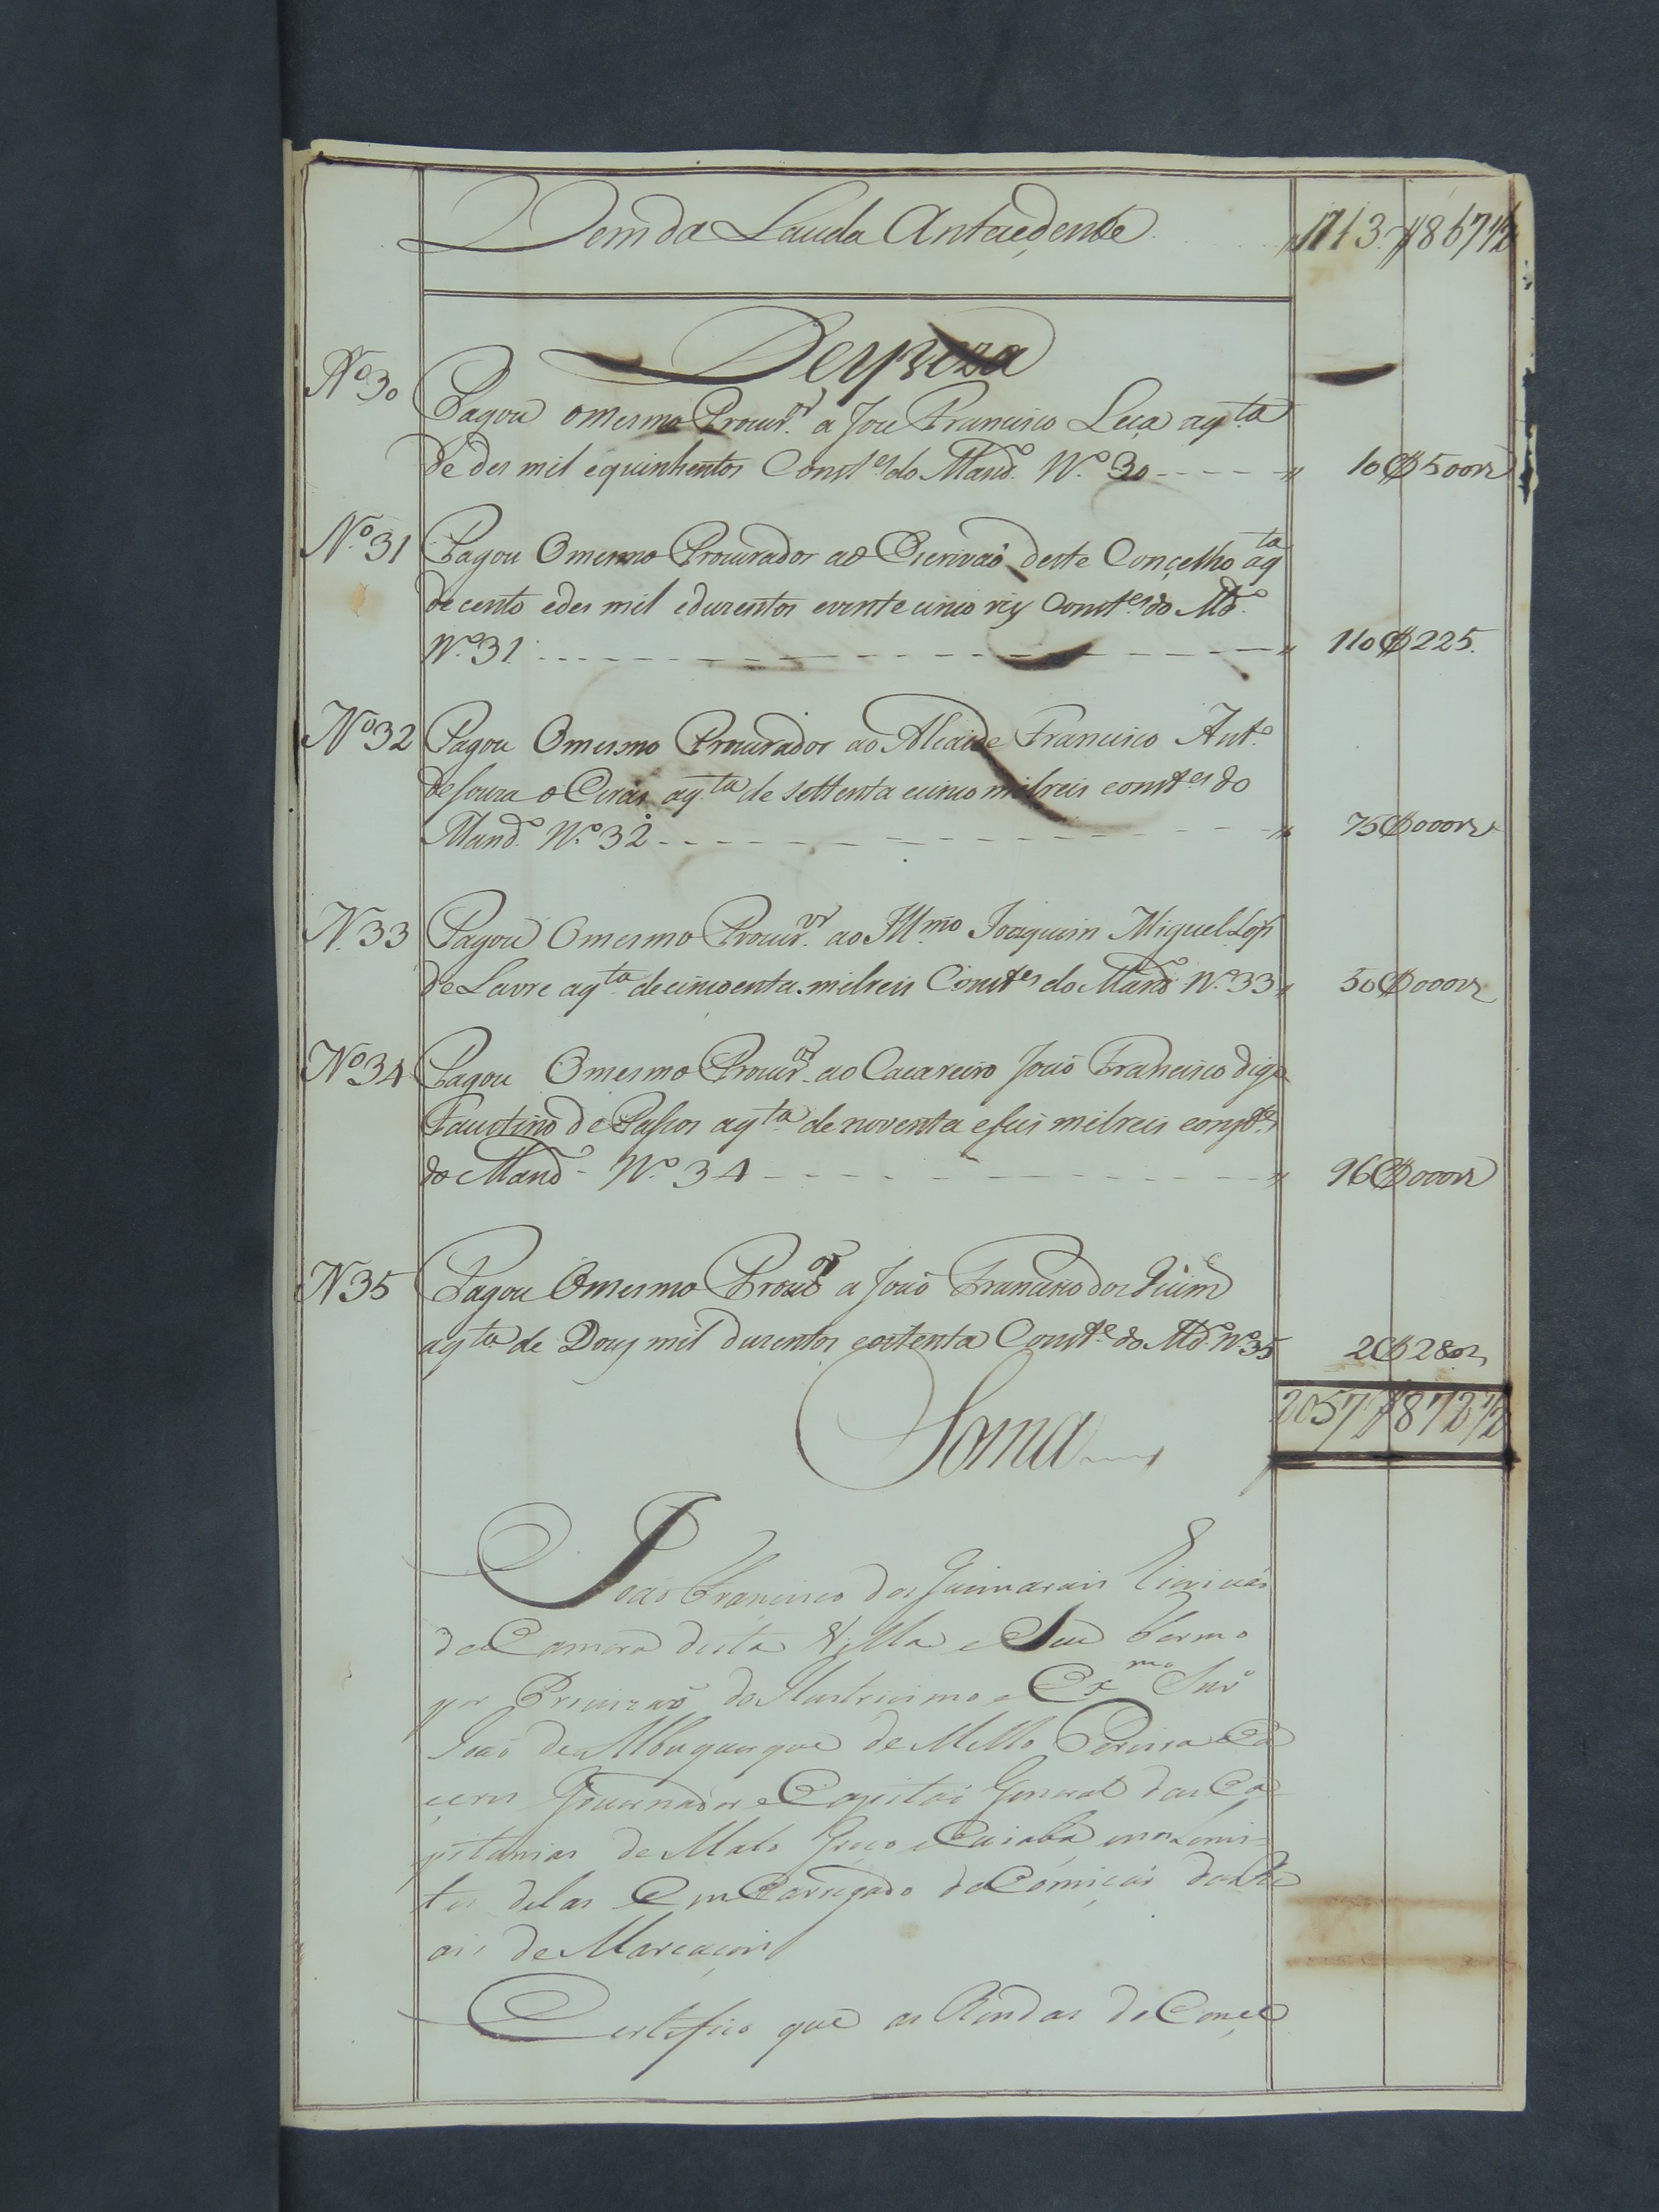 Vem da Lauda Antecedente 1713$867 1/2
Despeza
Nº 30
Pagou o mesmo Procur.or a Joze Francisco Leça a q.ta
de des mil e quinhentos Const.es do Mand.o N.º 30 ---- " 10$500 r
N.º 31 Pagou O mesmo Procurador ao Escrivaõ deste Concelho a q.ta
de cento e des mil e duzentos e vinte cinco reis Const.es do M.do
N.º 31 ---- " 110$225
Nº 32 Pagou O mesmo Procurador ao Alcaide Francisco Ant.o
de Souza a q.ta de settenta e cinco mil reis const.es do
Mand.o N.º 32 ---- " 75$000 r
N. 33 Pagou O mesmo Procur.or ao Ill.mo Joaquim Miguel Lop.s
de Lavre a q.ta de cincoenta mil reis Const.es do Mand.o N.º 33 " 50$000 r
Nº 34 Pagou O mesmo Procur.or ao Cacareiro Joaõ Francisco digo
Faustino de Passos a q.ta de noventa e seis mil reis const.es
do Mand.o N.º 34 ---- " 96$000 r
N 35 Pagou O mesmo Procur.or a Joaõ Francisco dos Guim.es
a q.ta de Dous mil duzentos e oitenta Const.e do M.do Nº 35 2$280 r
Soma 2057$872 1/2
Joaõ Francisco dos Guimarais Escrivaõ
da Camera desta Villa e Seu Termo
por Provizaõ do Illustrisimo e Ex.mo Snr.
Joaõ de Albuquerque de Mello Pereira e Cá
ceres Governador e Capitaõ General das Ca
pitanias de Mato Groço e Cuiabá nos Limi-
tes delas Em Carregado da Comiçaõ das Re
ais de Marcaçois
Certifico que as Rendas do Concel